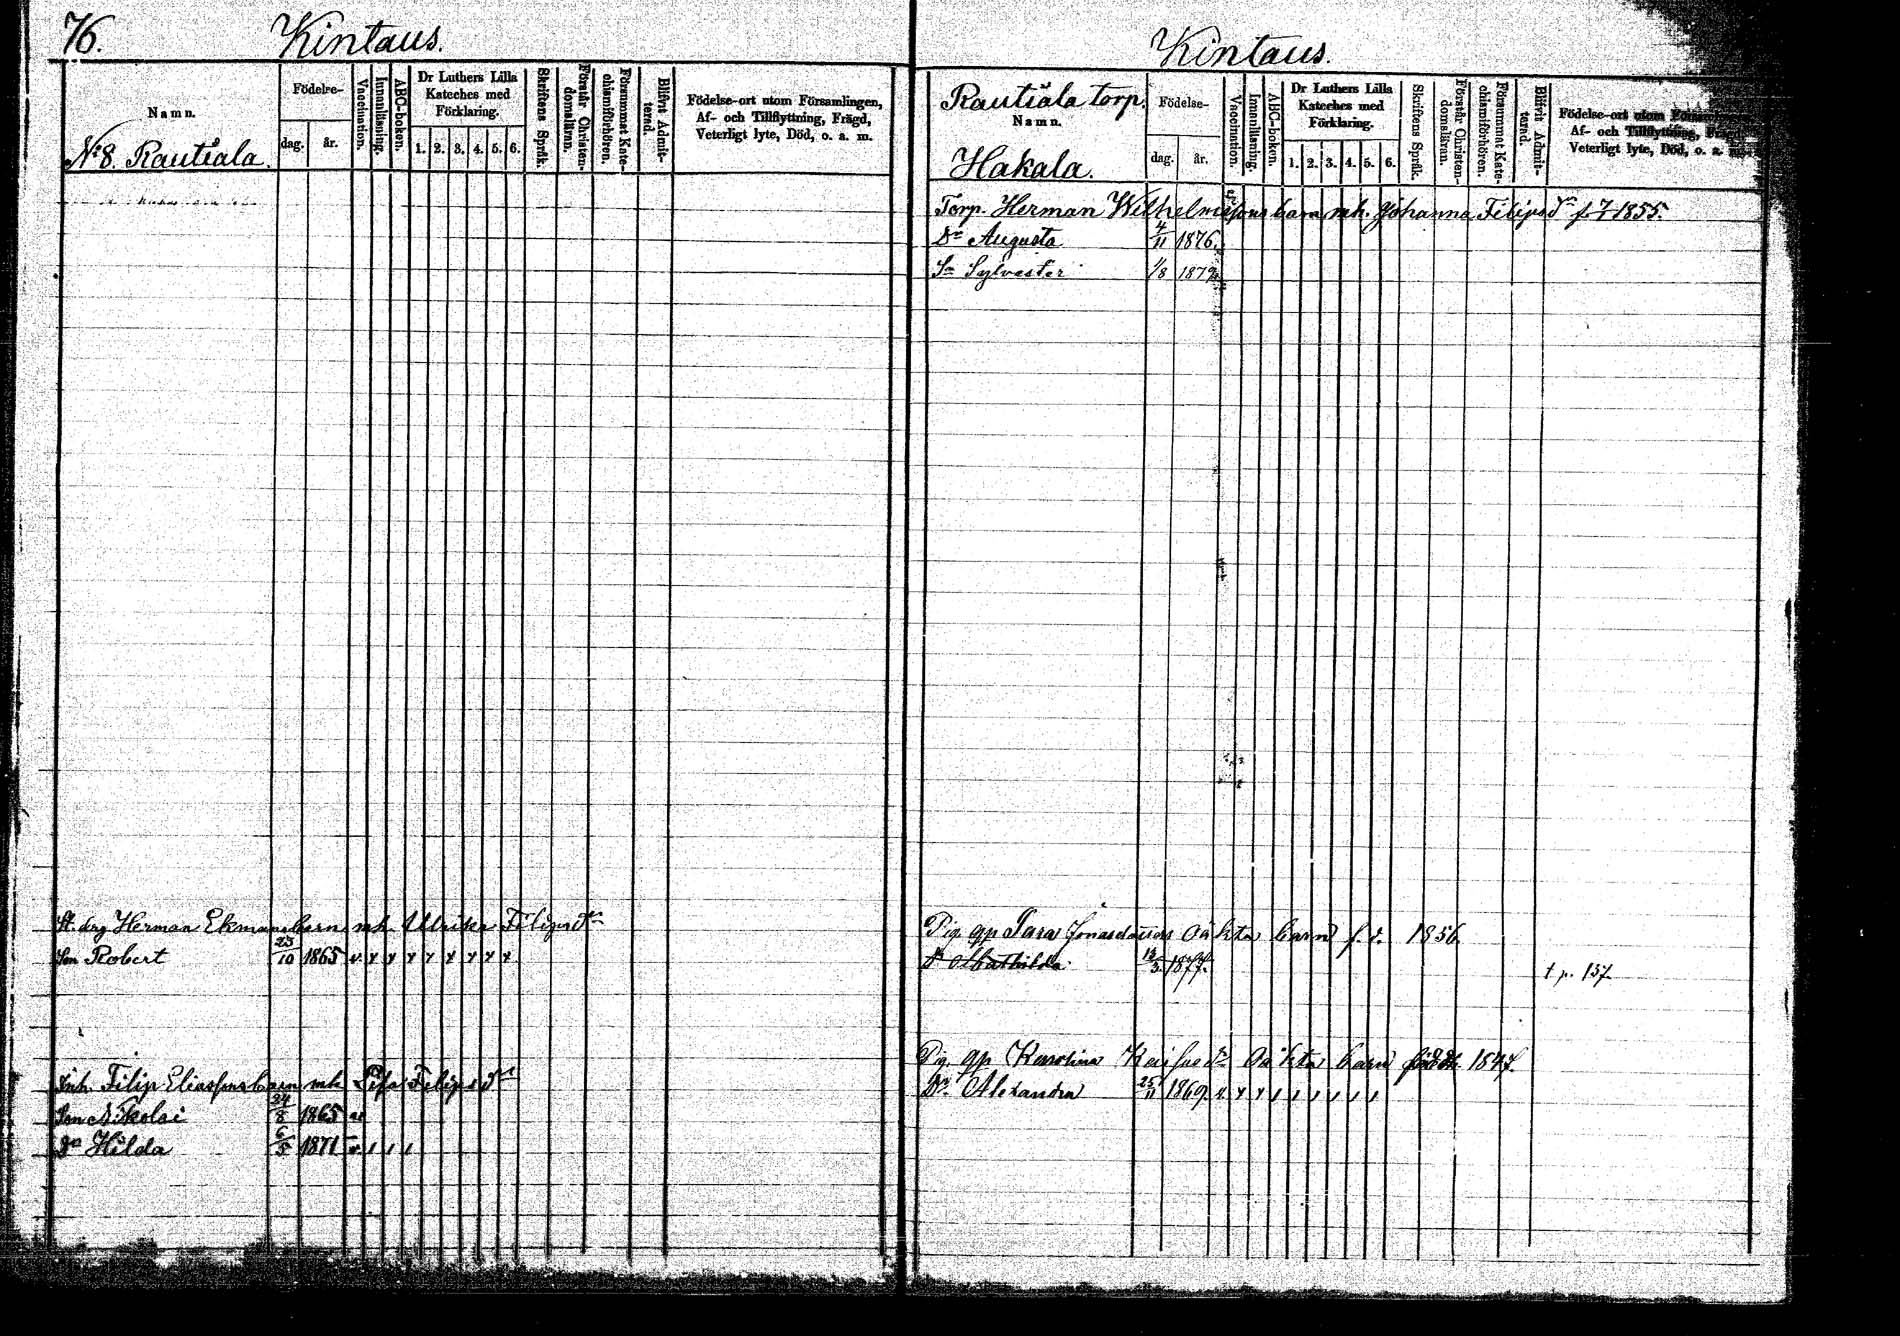 76.
Kintaus.
Namn.
No 8. Rautiala.
Födelse-
dag.
år.
Vaccination.
Innanläsning.
ABC-boken.
Dr Luthers Lilla
Kateches med
Förklaring.
1. 2. 3. 4. 5. 6.
Skriftens Språk.
Förstår Christen-
domslärann.
Försummat Kate-
chismiförhören.
Blifvit Admit-
terad.
Födelse-ort utom Församlingen,
Af- och Tillflyttning, Frägd,
Veterligt lyte, Död, o. a. m.
St. drg Herman Ekmans barn mh. Ulrika Filipsdr
Son Robert 23/10 1865
Inh. Filip Eliassons barn mh Filipsdr
Son Nikolai 24/8 1865
Dr Hilda 6/5 1871
Kintaus.
Rautiala torp.
Namn.
Hakala.
Födelse-
dag.
år.
Vaccination.
Innanläsning.
ABC-boken.
Dr Luthers Lilla
Kateches med
Förklaring.
1. 2. 3. 4. 5. 6.
Skriftens Språk.
Förstår Christen-
domsläran.
Försummat Kate-
chismiförhören.
Blifvit Admit-
terad.
Födelse-ort utom
Af- och Tillflyttning, Frägd,
Veterligt lyte, Död, o. a.
Torp. Herman Wilhelmssons barn mh. Johanna Filipsdr f. 1855.
Dr Augusta 4/11 1876.
Sn Sylvester 1/8 1879
Pig. gp Sara Jonasdotters oäkta barn f. 1856.
Dr Mathilda 1877. t p. 157
Pig. gp Karolina oäkta barn 1847.
Dr Alexandra 25/11 1869.